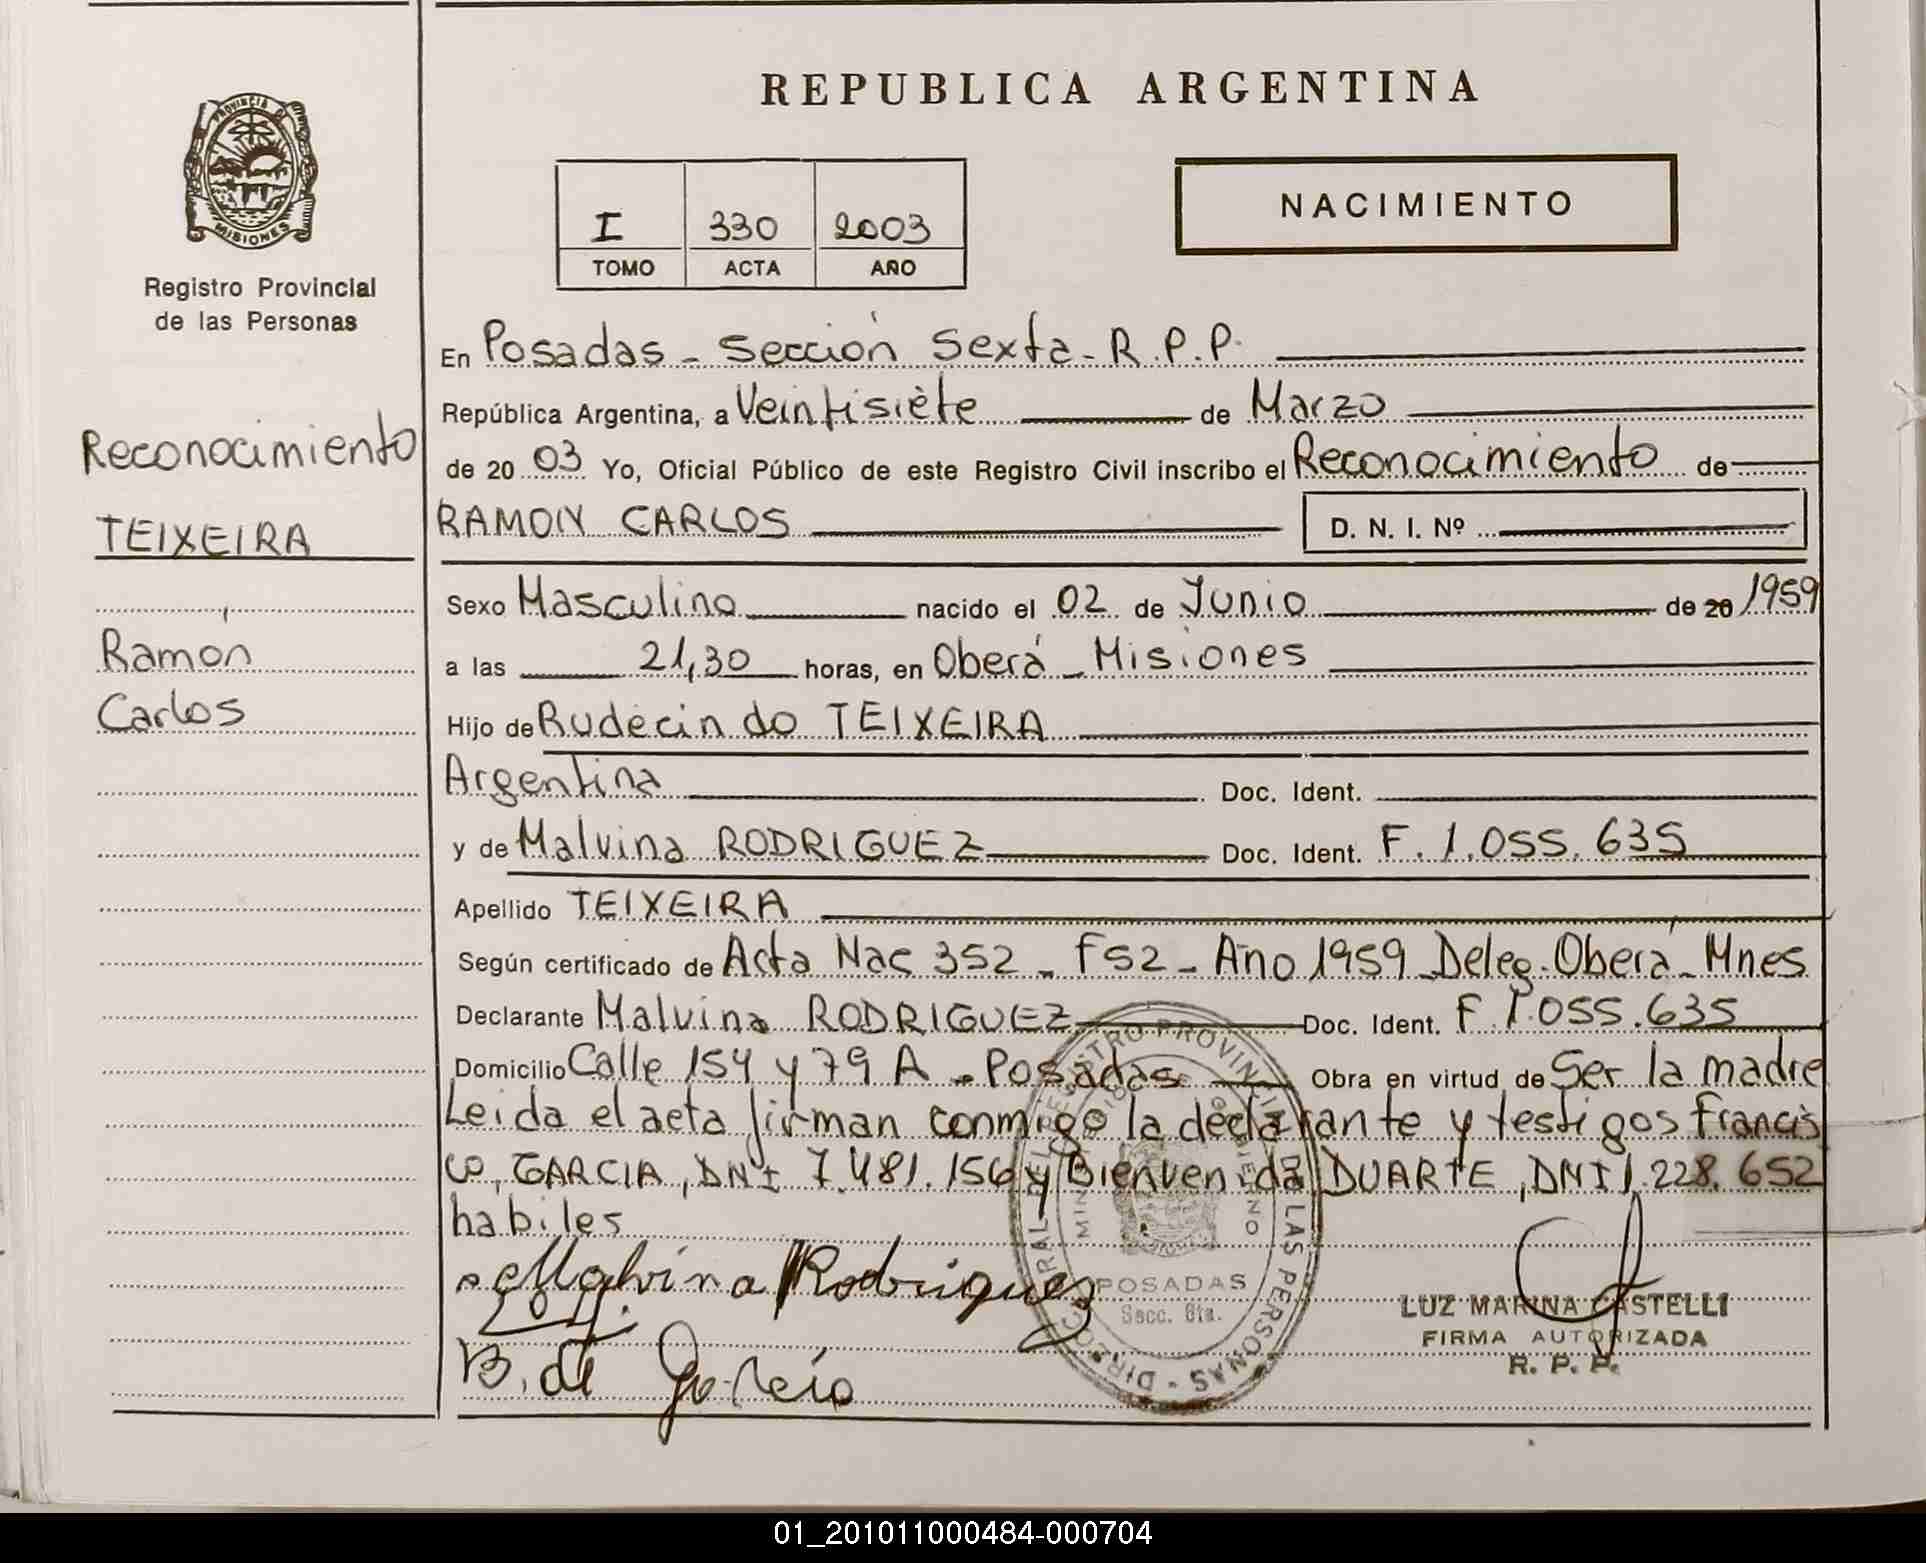 REPUBLICA ARGENTINA
PROVINCIA D
MISIONES
Registro Provincial
de las Personas
I 330 2003
TOMO ACTA AÑO
NACIMIENTO
Reconocimiento
TEIXEIRA
Ramón
Carlos
En Posadas - Sección Sexta - R.P.P.
República Argentina, a Veintisiete de Marzo
de 20 03 Yo, Oficial Público de este Registro Civil inscribo el Reconocimiento de
RAMON CARLOS D. N. I. Nº
Sexo Masculino nacido el 02 de Junio de 20 1959
a las 21,30 horas, en Oberá - Misiones
Hijo de Rudecindo TEIXEIRA
Argentina Doc. Ident.
y de Malvina RODRIGUEZ Doc. Ident. F. 1.055.635
Apellido TEIXEIRA
Según certificado de Acta Nac 352 - F52 - Año 1959 Deleg. Oberá - Mnes
Declarante Malvina RODRIGUEZ Doc. Ident. F 1.055.635
Domicilio Calle 154 y 79 A - Posadas Obra en virtud de Ser la madre
Leida el acta firman conmigo la declarante y testigos Francis
co, GARCIA, DNI 7.481.156 y Bienvenida DUARTE, DNI 1.228.652
habiles
Malvina Rodriguez
B. de Garcia
POSADAS
Secc. 6ta.
LUZ MARINA CASTELLI
FIRMA AUTORIZADA
R. P. P.
01_201011000484-000704